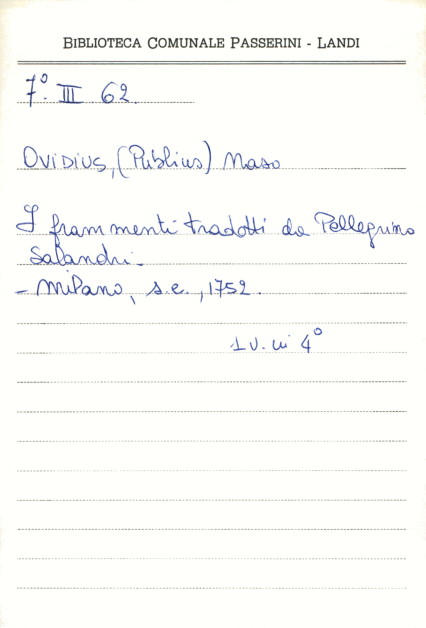 BIBLIOTECA COMUNALE PASSERINI - LANDI
7° III 62
Ovidius, (Publius) Naso
I frammenti tradotti da Pellegrino
Salandri -
- Milano, s.e., 1752.
1 v. in 4°